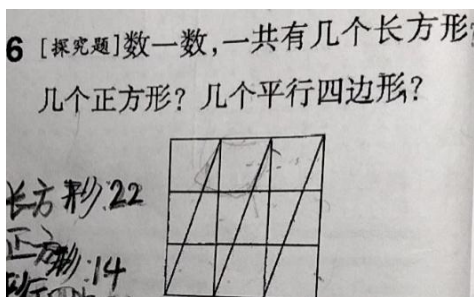 6 [探究题]数一数,一共有几个长方形?
几个正方形? 几个平行四边形?
长方形:22
正方形:14